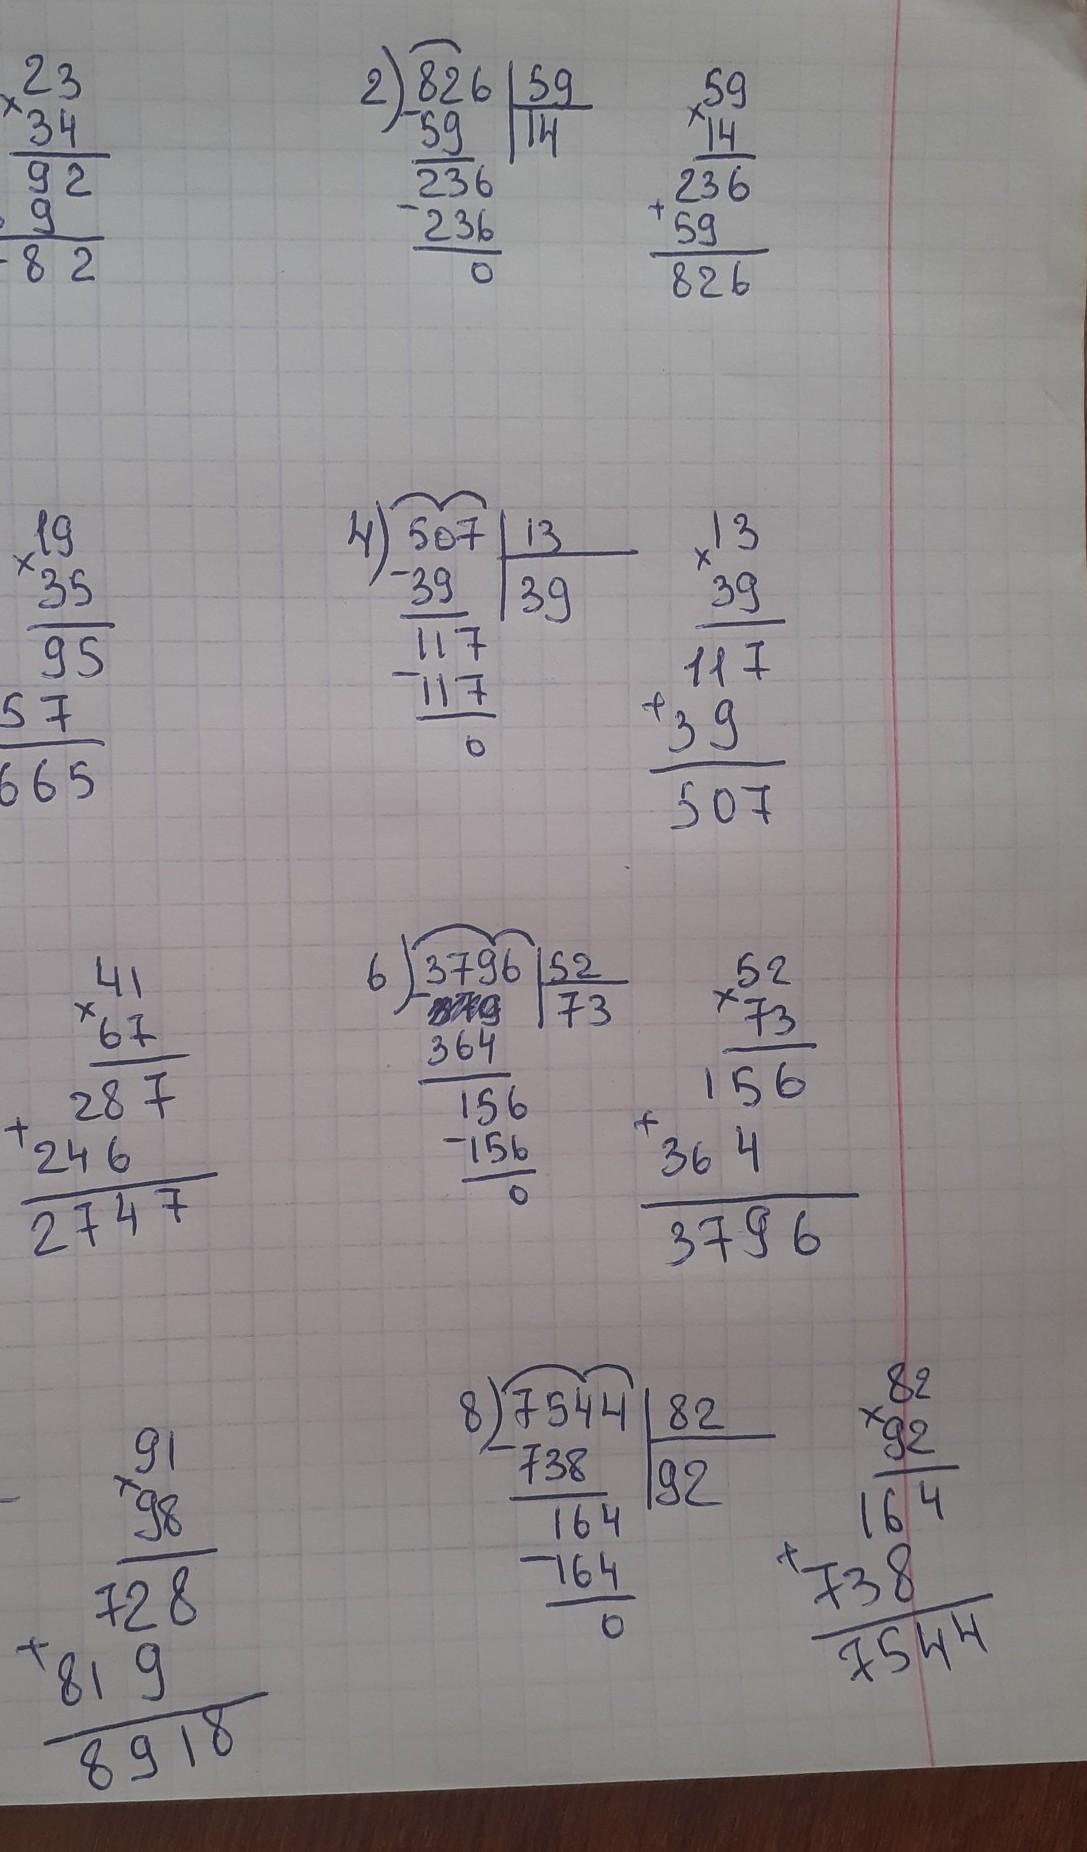 23
× 34
92
9
82
2) 826 | 59
- 59 | 14
236
- 236
0
59
× 14
236
+ 59
826
19
× 35
95
57
665
4) 507 | 13
- 39 | 39
117
- 117
0
13
× 39
117
+ 39
507
41
× 67
287
+ 246
2747
6) 3796 | 52
- | 73
364
156
- 156
0
52
× 73
156
+ 364
3796
91
× 98
728
+ 819
8918
8) 7544 | 82
- 738 | 92
164
- 164
0
82
× 92
164
+ 738
7544